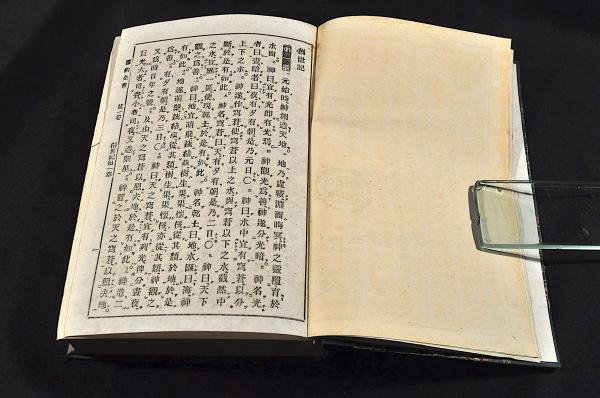 創世記
元始時神創造天地。地乃虛曠淵面晦冥神之靈覆育於
水面。神曰宜有光即有光焉。神觀光爲善神遂分光暗。神名光
者曰晝暗者曰夜有夕有朝是乃元日〇神曰水中宜有穹蒼以分
上下之水。神遂作穹蒼使穹蒼以上之水與穹蒼以下之水截然中
斷於是有如此。神名穹蒼曰天有夕有朝是乃二日〇神曰天下
之水宜匯一區使現乾土於是有如此。神名乾土曰地水匯曰海神
觀之爲善。神曰地宜萌蔬結樹生果果懷核從其類於地於是
有如此。地遂萌蔬結樹生果果懷核亦從其類神觀之
爲善。有夕有朝是乃三日〇神曰天之穹蒼宜有列光俾分晝夜
又爲時日年之號。及由天之穹蒼以照夫地於是有如此。神造二
巨光大者司晝小者司夜又造衆星。神置之於天之穹蒼以照夫地。
舊約全書 第一卷 創世記第一章